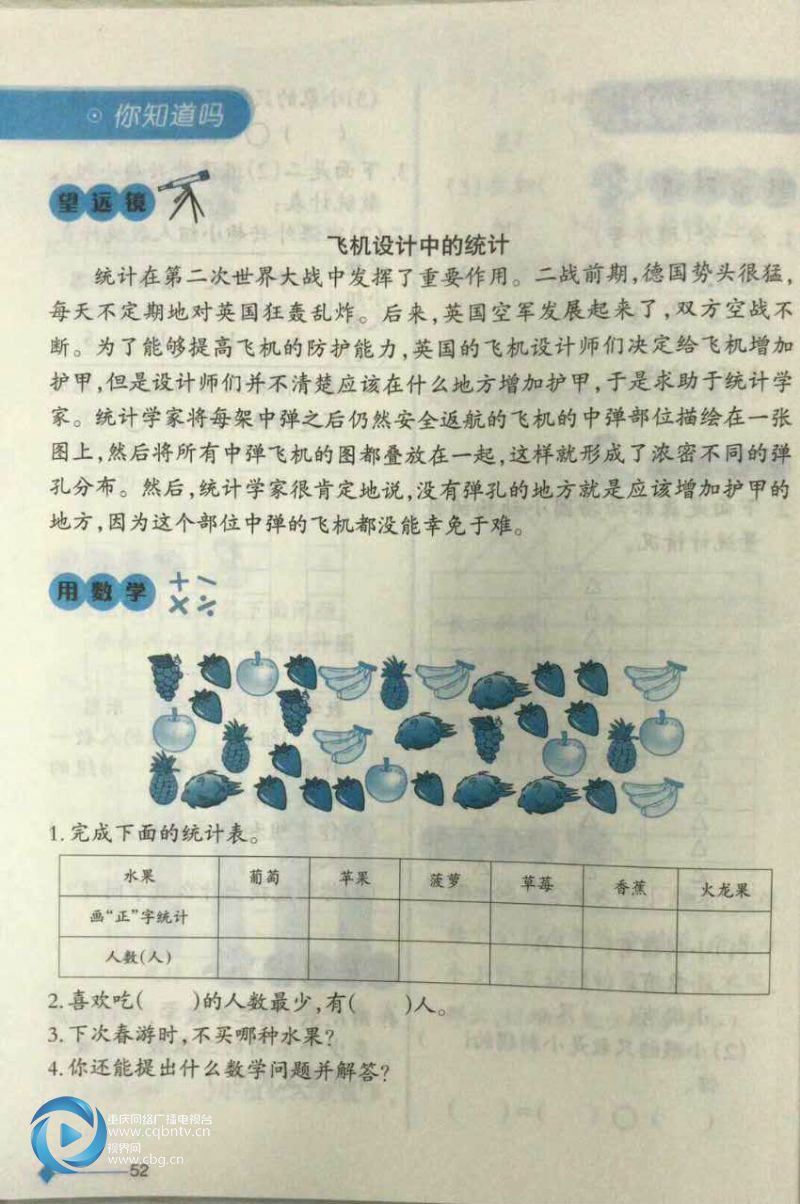 你知道吗
望远镜
飞机设计中的统计
统计在第二次世界大战中发挥了重要作用。二战前期,德国势头很猛,
每天不定期地对英国狂轰乱炸。后来,英国空军发展起来了,双方空战不
断。为了能够提高飞机的防护能力,英国的飞机设计师们决定给飞机增加
护甲,但是设计师们并不清楚应该在什么地方增加护甲,于是求助于统计学
家。统计学家将每架中弹之后仍然安全返航的飞机的中弹部位描绘在一张
图上,然后将所有中弹飞机的图都叠放在一起,这样就形成了浓密不同的弹
孔分布。然后,统计学家很肯定地说,没有弹孔的地方就是应该增加护甲的
地方,因为这个部位中弹的飞机都没能幸免于难。
用数学
1.完成下面的统计表。
水果 葡萄 苹果 菠萝 草莓 香蕉 火龙果
画“正”字统计
人数(人)
2.喜欢吃( )的人数最少,有( )人。
3.下次春游时,不买哪种水果?
4.你还能提出什么数学问题并解答?
重庆网络广播电视台
www.cqbntv.cn
视界网
www.cbg.cn
52